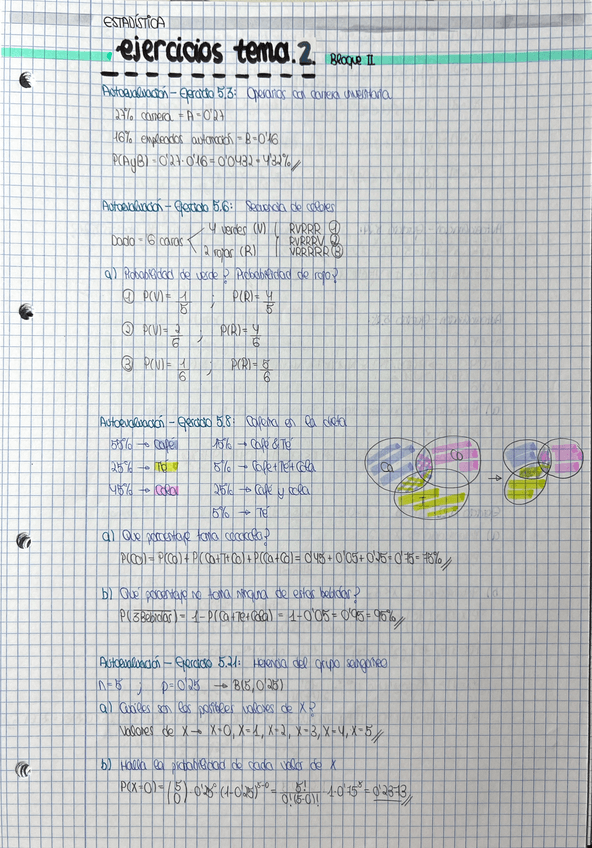 ESTADÍSTICA
ejercicios tema.2. Bloque II
Autoevaluación - Ejercicio 5.3: Operarios con carrera universitaria
27% carrera = A = 0'27
16% empleados automoción = B = 0'16
P(AyB) = 0'27 · 0'16 = 0'0432 = 4'32%
Autoevaluación - Ejercicio 5.6: Secuencia de colores
Dado = 6 caras
4 verdes (V)
2 rojas (R)
RVRRR ①
RVRRRV ②
VRRRRR ③
a) Probabilidad de verde? Probabilidad de rojo?
① P(V) = 1/5 ; P(R) = 4/5
② P(V) = 2/6 ; P(R) = 4/6
③ P(V) = 1/6 ; P(R) = 5/6
Autoevaluación - Ejercicio 5.8: Cafeína en la dieta
55% → Café 15% → Café & Té
25% → Té 5% → Café + Té + Cola
45% → Cola 25% → Café y cola
5% → Té
Ca Co T
a) Que porcentaje toma cocacola?
P(Co) = P(Co) + P(Ca+T+Co) + P(Ca+Co) = 0'45 + 0'05 + 0'25 = 0'75 = 75%
b) Que porcentaje no toma ninguna de estas bebidas?
P(3Bebidas) = 1 - P(Ca+Te+Cola) = 1 - 0'05 = 0'95 = 95%
Autoevaluación - Ejercicio 5.21: Herencia del grupo sanguíneo
n = 5 ; p = 0'25 → B(5, 0'25)
a) Cuáles son los posibles valores de X?
Valores de X → X=0, X=1, X=2, X=3, X=4, X=5
b) Halla la probabilidad de cada valor de X
P(X=0) = (5 0) · 0'25⁰ (1-0'25)⁵⁻⁰ = 5!/0!(5-0)! · 1 · 0'75⁵ = 0'2373